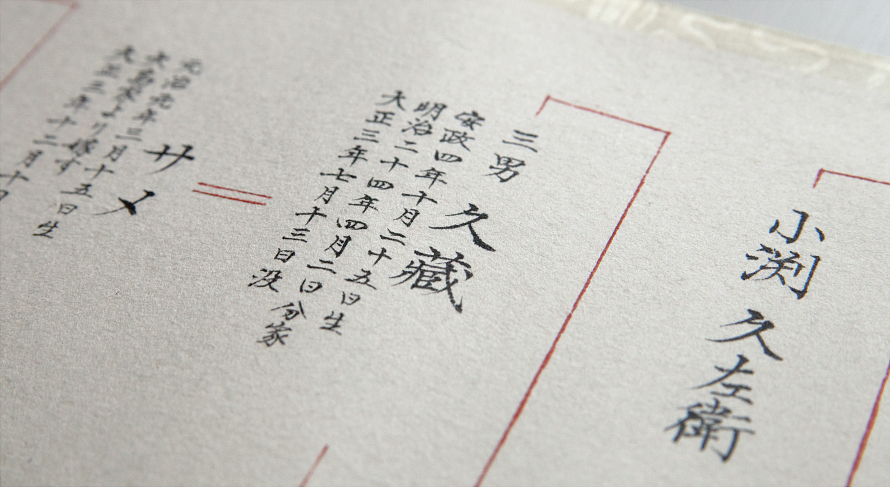 小渕 久左衛
三男
久藏
安政四年十月二十五日生
明治二十四年四月二日分家
大正三年七月十三日没
サメ
元治元年三月十五日生
より嫁す
大正三年十二月十日